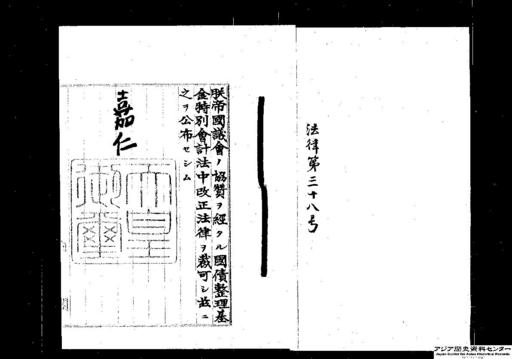 法律第三十八号
朕帝國議會ノ協贊ヲ經タル國債整理基
金特別會計法中改正法律ヲ裁可シ玆ニ
之ヲ公布セシム
嘉仁
天皇
御璽
アジア歴史資料センター
Japan Center for Asian Historical Records